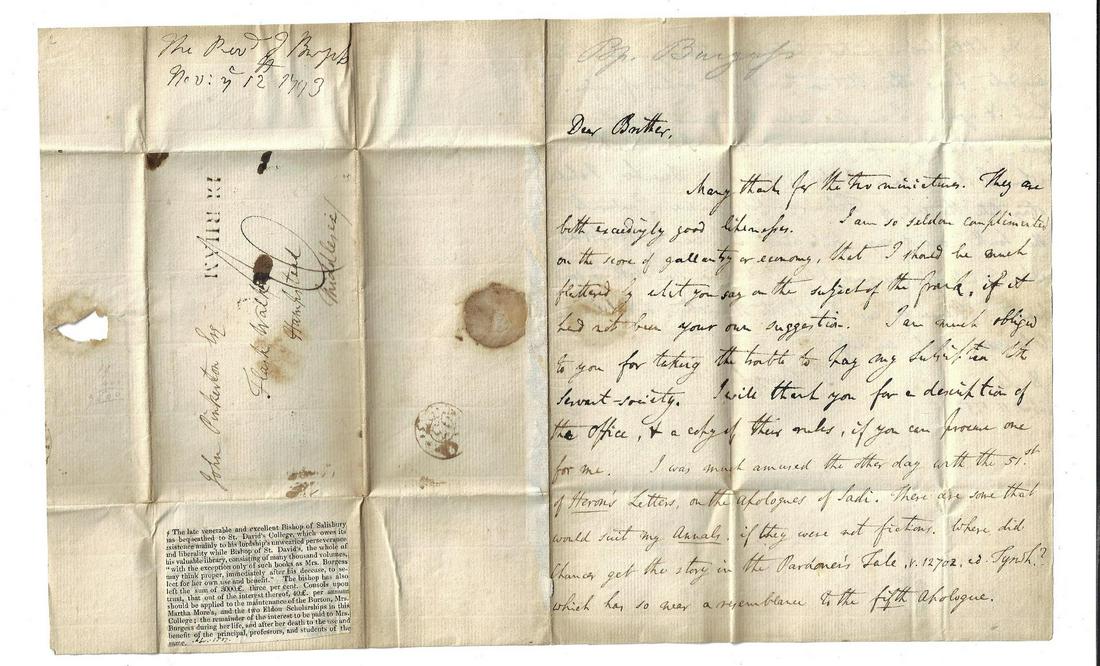 The Revd J Burgess
Nov: ye 12 1793
John Pinkerton Esq
Flask Walk
Hampstead
Middlesex
The late venerable and excellent Bishop of Salisbury
has bequeathed to St. David's College, which owes its
existence mainly to his lordship's unwearied perseverance
and liberality while Bishop of St. David's, the whole of
his valuable library, consisting of many thousand volumes,
"with the exception only of such books as Mrs. Burgess
may think proper, immediately after his decease, to se-
lect for her own use and benefit." The bishop has also
left the sum of 3000£. three per cent. Consols upon
trust, that out of the interest thereof, 40£. per annum
should be applied to the maintenance of the Burton, Mrs.
Martha More's, and the two Eldon Scholarships in this
College; the remainder of the interest to be paid to Mrs.
Burgess during her life, and after her death to the use and
benefit of the principal, professors, and students of the
same.
Bp. Burgess
Dear Brother,
Many thanks for the two miniatures. They are
both exceedingly good likenesses. I am so seldom complimented
on the score of gallantry or economy, that I should be much
flattered by what you say on the subject of the frank, if it
had not been your own suggestion. I am much obliged
to you for taking the trouble to pay my subscription to the
servant-society. I will thank you for a description of
the office, & a copy of their rules, if you can procure one
for me. I was much amused the other day with the 51.st
of Heron's Letters, on the Apologues of Sadi. There are some that
would suit my Annals, if they were not fictions. Where did
Chaucer get the story in the Pardoner's Tale, v. 12702. ed. Tyrwh.?
which has so near a resemblance to the fifth Apologue.